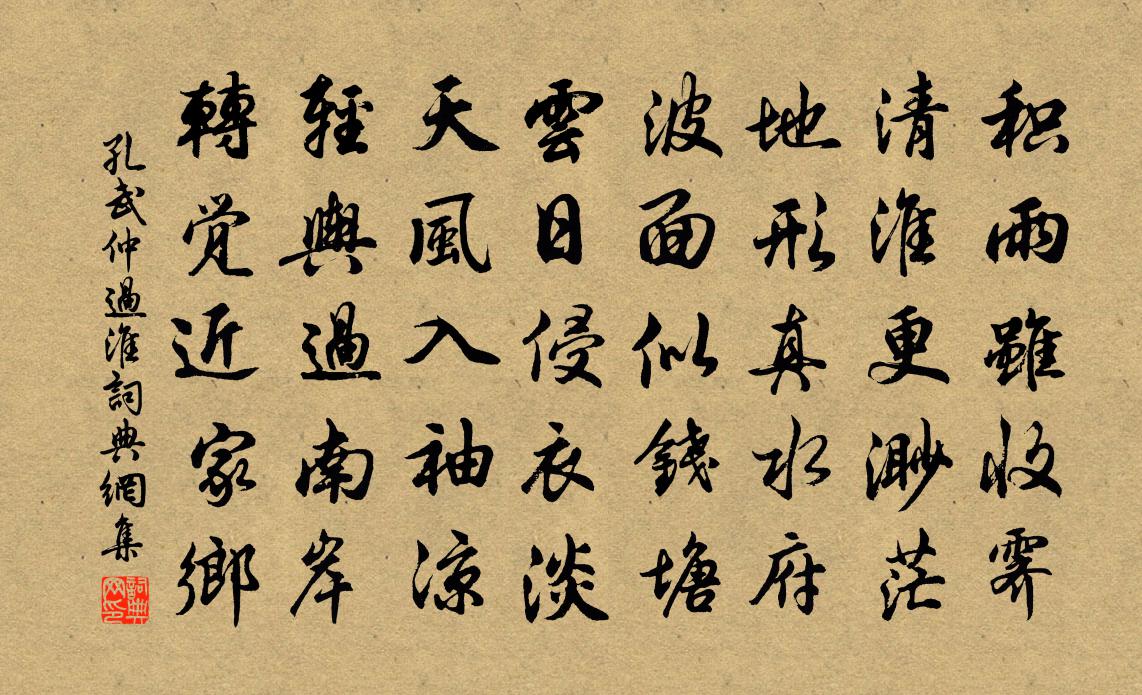 积雨雖收霁
清淮更渺茫
地形真水府
波面似錢塘
雲日侵衣淡
天風入袖涼
輕輿過南岸
轉觉近家鄉
孔武仲過淮詞典網集
詞典网印